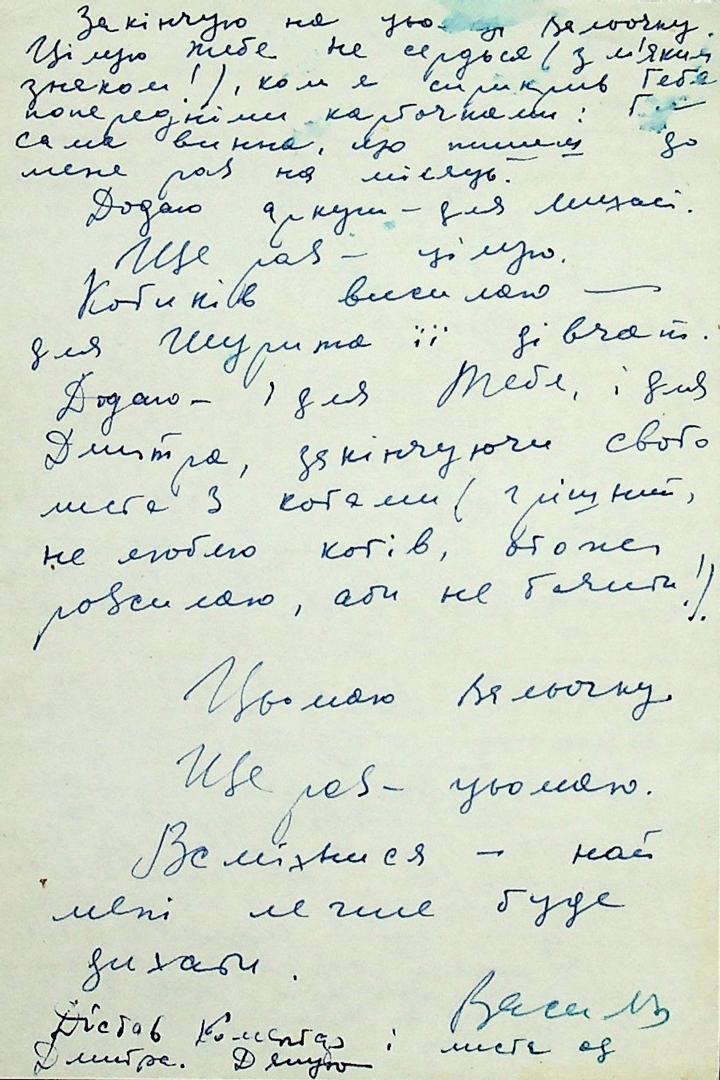 Закінчую на цьо Вальочку.
Цілую тебе не сердься (з м'яким
знаком!), коли я Тебе
попередніми карточками:
сама винна, що пишеш до
мене раз на місяць.
Додаю аркуш – для Михасі.
Ще раз – цілую.
Котиків висилаю —
для Шурита її дівчат.
Додаю – і для Тебе, і для
Дмитра, закінчуючи свого
листа з котами (грішний,
не люблю котів, отож
розсилаю, аби не бачити!)
Цьомаю Вальочку
Ще раз – цьомаю.
Всміхнися – най
мені легше буде
дихати.
Василь
Дістав Коментар і листа од
Дмитра. Дякую